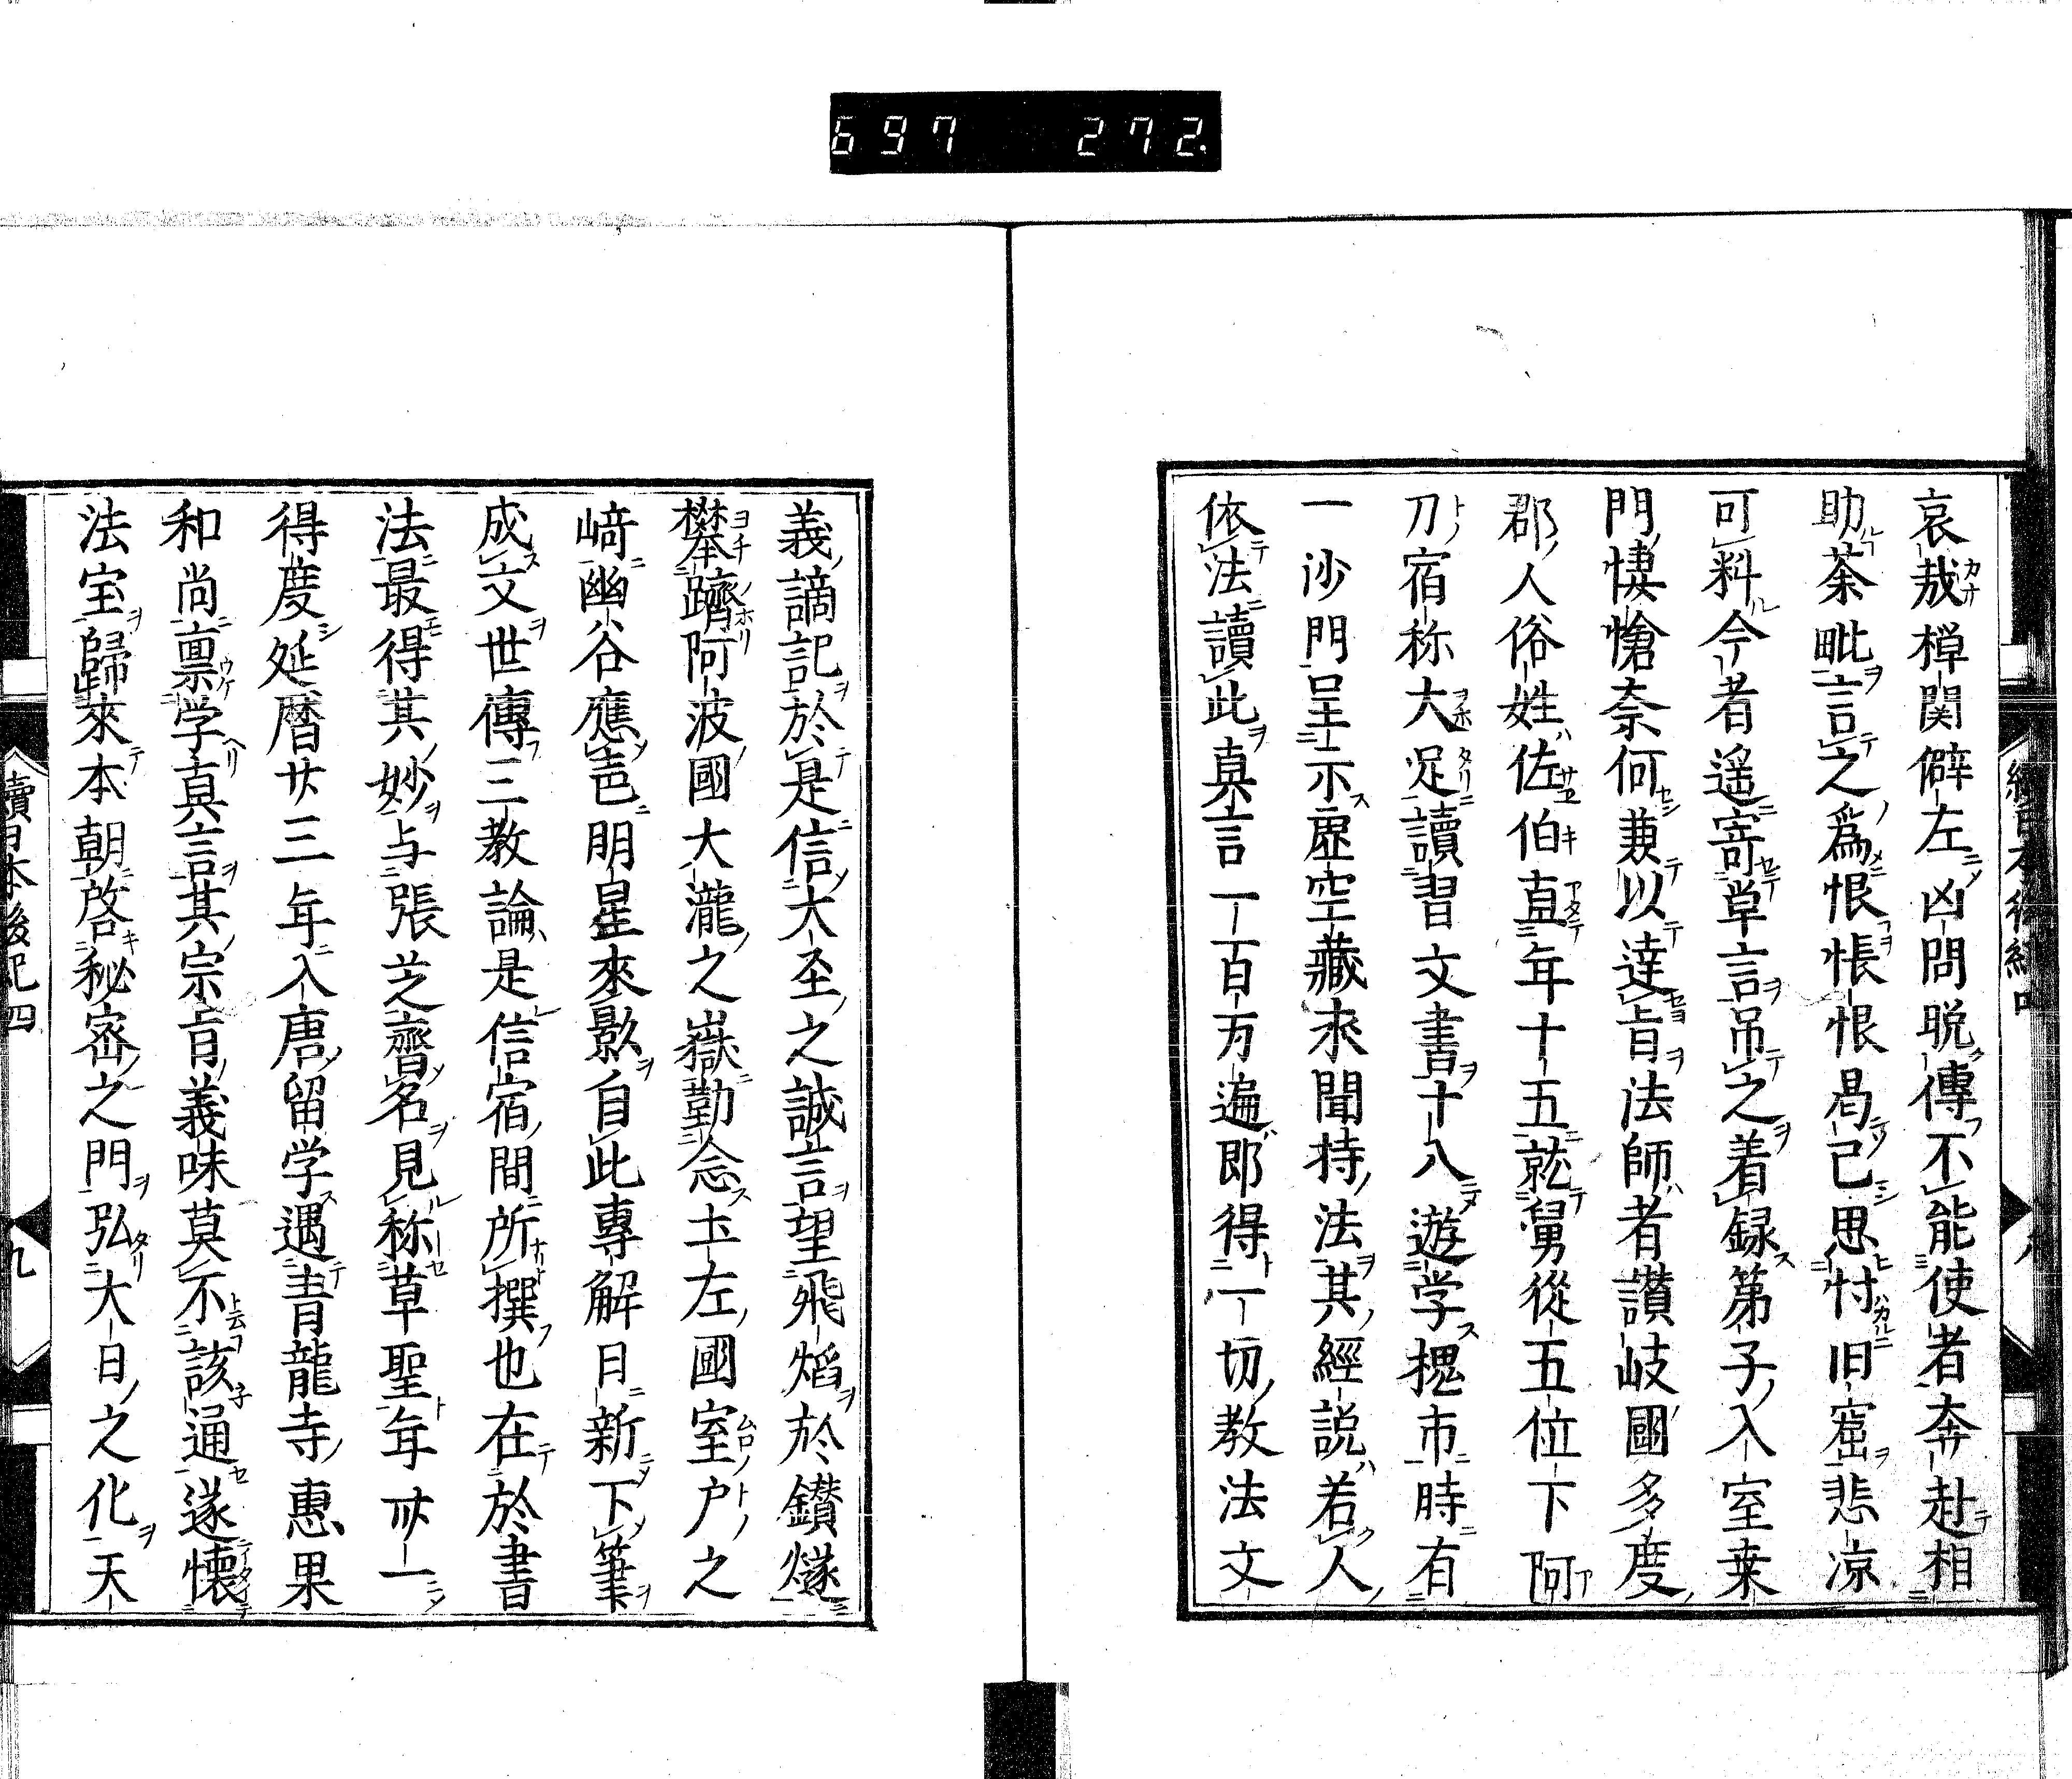 697 272.
哀哉樿関僻左凶問晩傳不能使者奔赴相
助荼毗言之爲恨悵恨曷已思忖旧窟悲凉
可料今者遥寄単言吊之着録第子入室桒
門悽愴奈何兼以達㫖法師者讃岐國多度
郡人俗姓佐伯直年十五就舅從五位下阿
刀宿称大足讀習文書十八遊学槐市時有
一沙門呈示虚空藏求聞持法其經説若人
依法讀此真言一百万遍即得一切教法文
義諳記於是信大圣之誠言望飛焰於鑚燧
攀躋阿波國大瀧之嶽勤念土左國室户之
﨑幽谷應㖈明星來影自此專解日新下筆
成文世傳三教論是信宿間所撰也在於書
法最得其妙与張芝齊名見称草聖年丗一
得度延暦廿三年入唐留学遇青龍寺惠果
和尚禀学真言其宗㫖義味莫不該通遂懐
法宝歸來本朝啓秘宻之門弘大日之化天
續日本後紀四 九